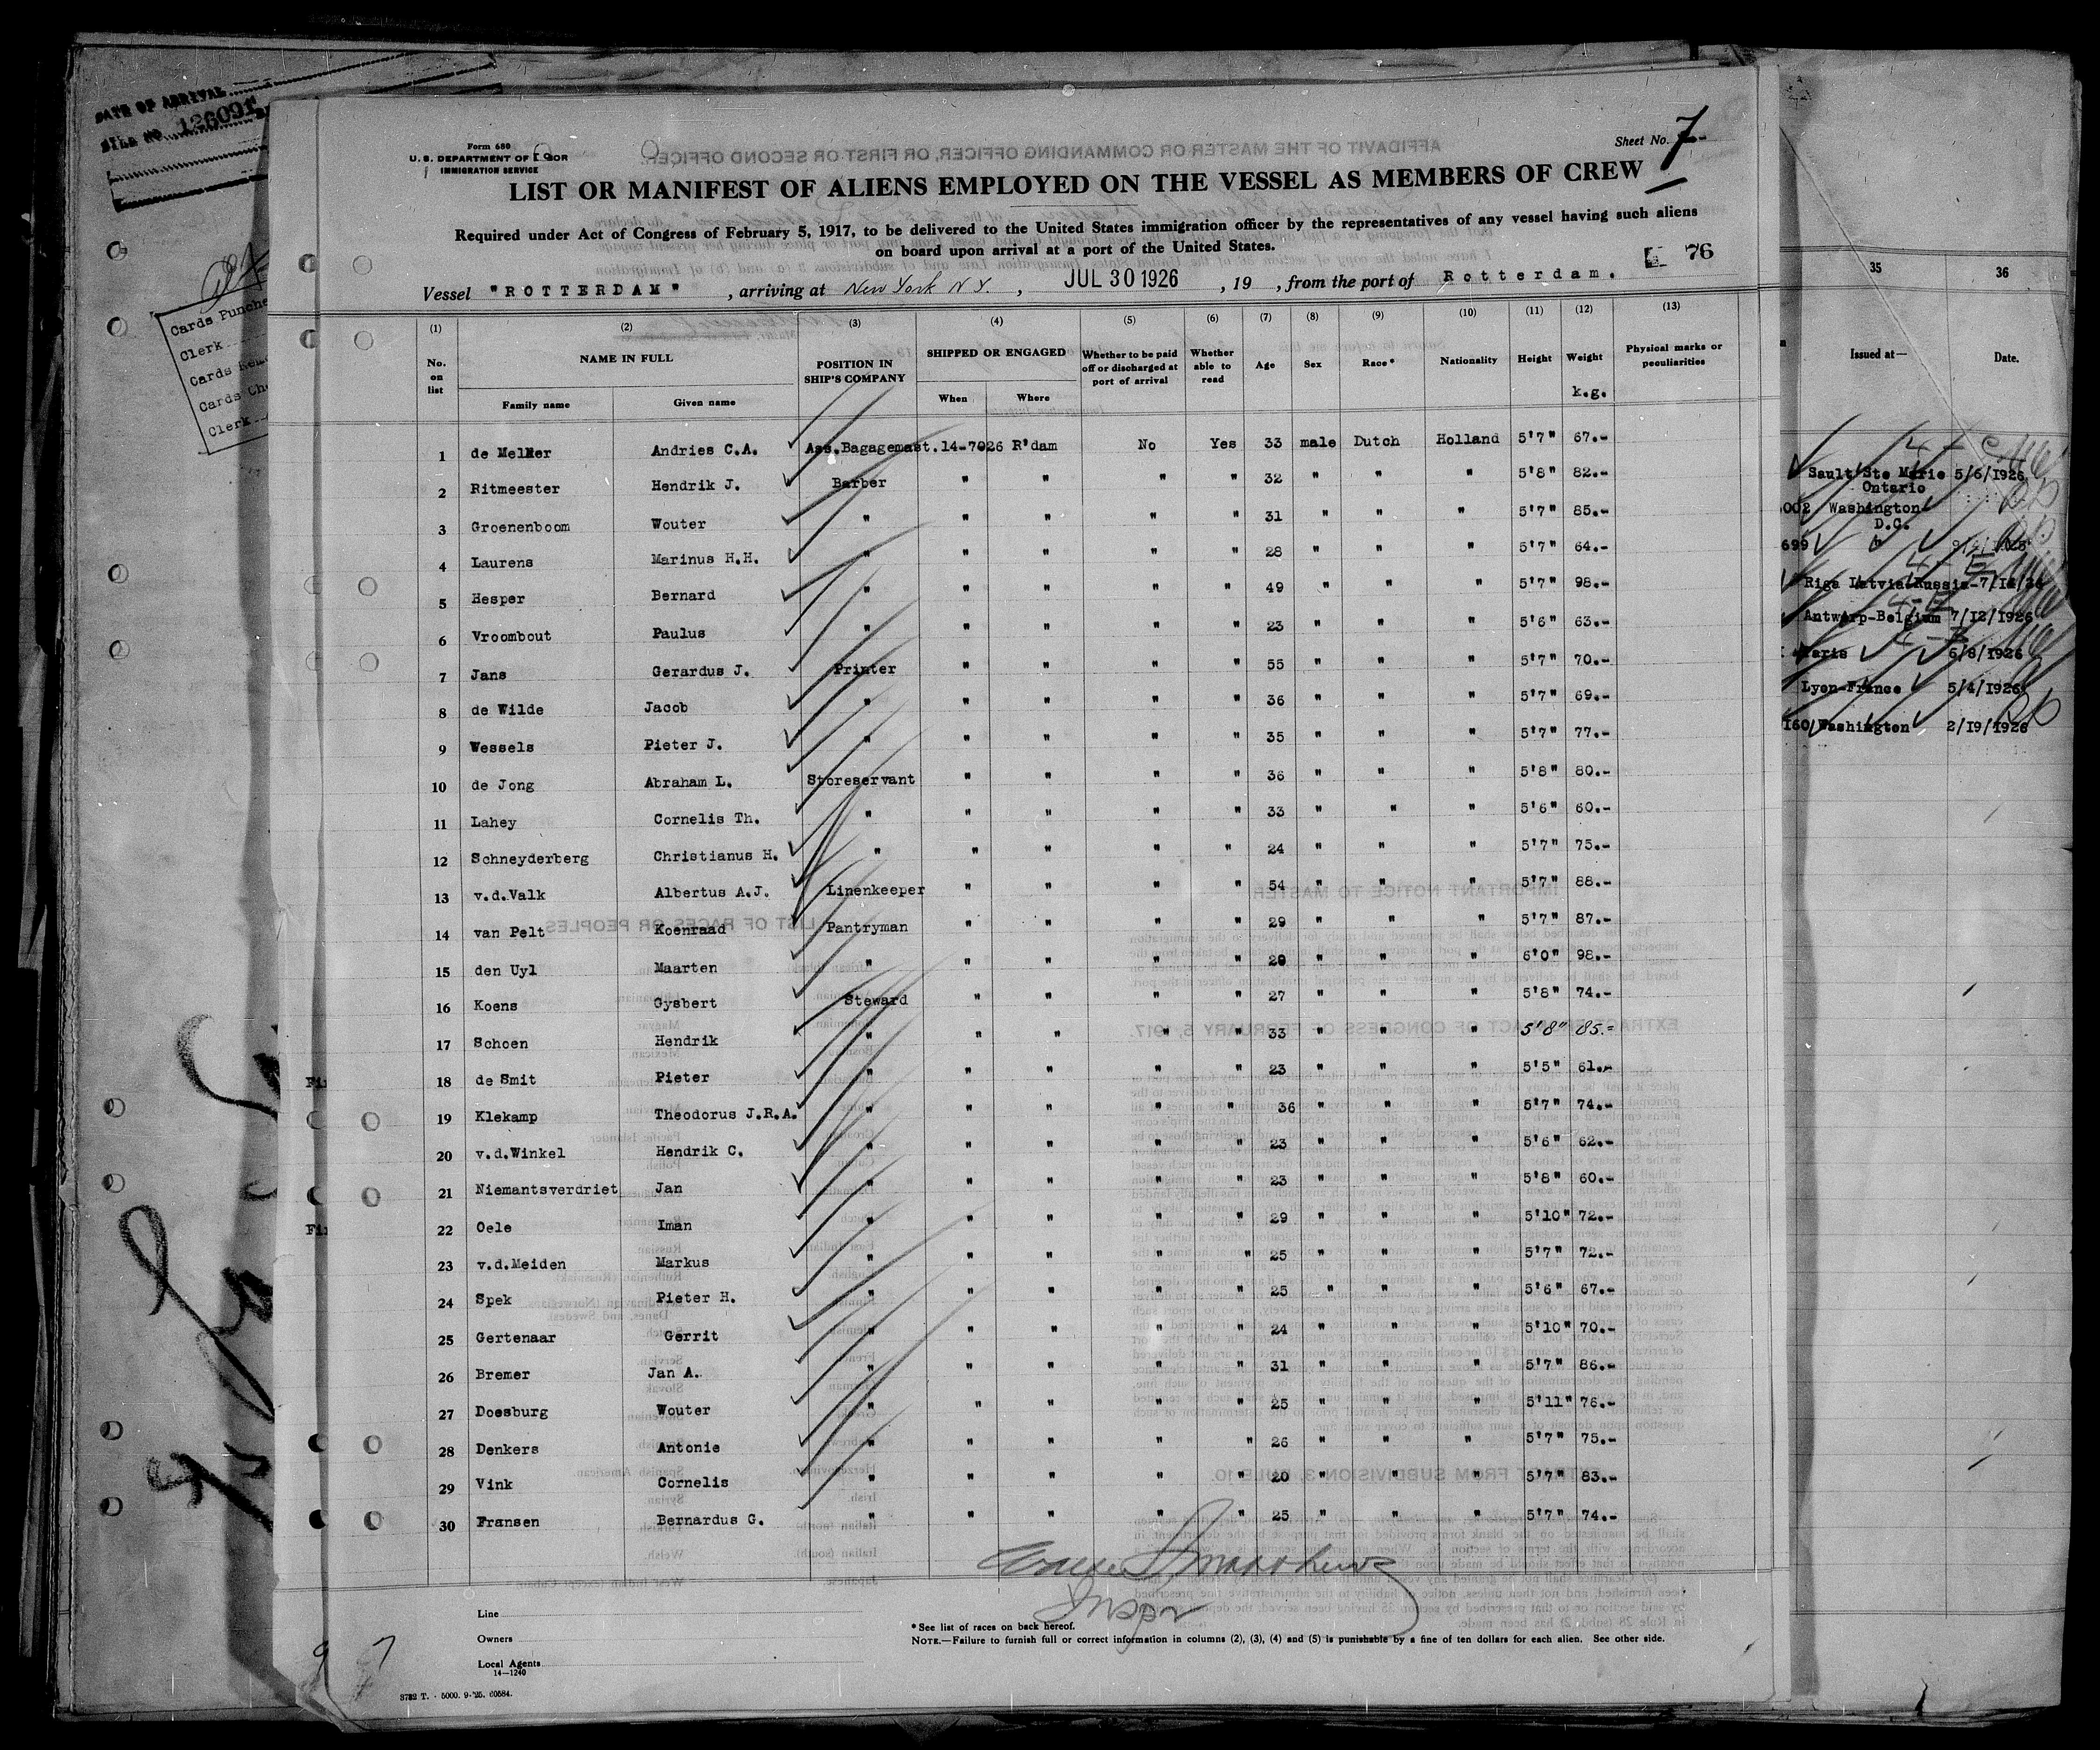 DATE OF ARRIVAL
FILE NO. 126091
Cards Punche
Clerk
Cards
Cards Che
Clerk
Form 680
U. S. DEPARTMENT OF LABOR
IMMIGRATION SERVICE
Sheet No. 7
LIST OR MANIFEST OF ALIENS EMPLOYED ON THE VESSEL AS MEMBERS OF CREW
Required under Act of Congress of February 5, 1917, to be delivered to the United States immigration officer by the representatives of any vessel having such aliens
on board upon arrival at a port of the United States.
76
Vessel "ROTTERDAM" , arriving at New York N.Y. , JUL 30 1926 , 19 , from the port of Rotterdam.
(1) (2) (3) (4) (5) (6) (7) (8) (9) (10) (11) (12) (13)
No. on list NAME IN FULL Family name Given name POSITION IN SHIP'S COMPANY SHIPPED OR ENGAGED When Where Whether to be paid off or discharged at port of arrival Whether able to read Age Sex Race* Nationality Height Weight k.g. Physical marks or peculiarities
1 de Melker Andries C.A. Ass.Bagagemast. 14-7026 R'dam No Yes 33 male Dutch Holland 5'7" 67.-
2 Ritmeester Hendrik J. Barber " " " " 32 " " " 5'8" 82.-
3 Groenenboom Wouter " " " " " 31 " " " 5'7" 85.-
4 Laurens Marinus H.H. " " " " " 28 " " " 5'7" 64.-
5 Hesper Bernard " " " " " 49 " " " 5'7" 98.-
6 Vroombout Paulus " " " " " 23 " " " 5'6" 63.-
7 Jans Gerardus J. Printer " " " " 55 " " " 5'7" 70.-
8 de Wilde Jacob " " " " " 36 " " " 5'7" 69.-
9 Wessels Pieter J. " " " " " 35 " " " 5'7" 77.-
10 de Jong Abraham L. Storeservant " " " " 36 " " " 5'8" 80.-
11 Lahey Cornelis Th. " " " " " 33 " " " 5'6" 60.-
12 Schneyderberg Christianus H. " " " " " 24 " " " 5'7" 75.-
13 v.d.Valk Albertus A.J. Linenkeeper " " " " 54 " " " 5'7" 88.-
14 van Pelt Koenraad Pantryman " " " " 29 " " " 5'7" 87.-
15 den Uyl Maarten " " " " " 20 " " " 6'0" 98.-
16 Koens Gysbert Steward " " " " 27 " " " 5'8" 74.-
17 Schoen Hendrik " " " " " 33 " " " 5'8" 85.-
18 de Smit Pieter " " " " " 23 " " " 5'5" 61.-
19 Klekamp Theodorus J.R.A. " " " " " 36 " " " 5'7" 74.-
20 v.d.Winkel Hendrik C. " " " " " 23 " " " 5'6" 62.-
21 Niemantsverdriet Jan " " " " " 23 " " " 5'8" 60.-
22 Oele Iman " " " " " 29 " " " 5'10" 72.-
23 v.d.Meiden Markus " " " " " 25 " " " 5'7" 72.-
24 Spek Pieter H. " " " " " 25 " " " 5'6" 67.-
25 Gertenaar Gerrit " " " " " 24 " " " 5'10" 70.-
26 Bremer Jan A. " " " " " 31 " " " 5'7" 86.-
27 Doesburg Wouter " " " " " 25 " " " 5'11" 76.-
28 Denkers Antonie " " " " " 26 " " " 5'7" 75.-
29 Vink Cornelis " " " " " 20 " " " 5'7" 83.-
30 Fransen Bernardus G. " " " " " 25 " " " 5'7" 74.-
Matthews
Inspr
Line
Owners
Local Agents
14—1240
* See list of races on back hereof.
NOTE.—Failure to furnish full or correct information in columns (2), (3), (4) and (5) is punishable by a fine of ten dollars for each alien. See other side.
9 7
3782 T. - 5000. 9-'25. 60584.
35 36
Issued at— Date.
Sault Ste Marie 5/6/1926
Ontario
002 Washington
D.C.
699 "
Riga Latvia Russia-7/12/26
Antwerp-Belgium 7/12/1926
Paris 6/8/1926
Lyon-France 5/4/1926
160 Washington 2/19/1926